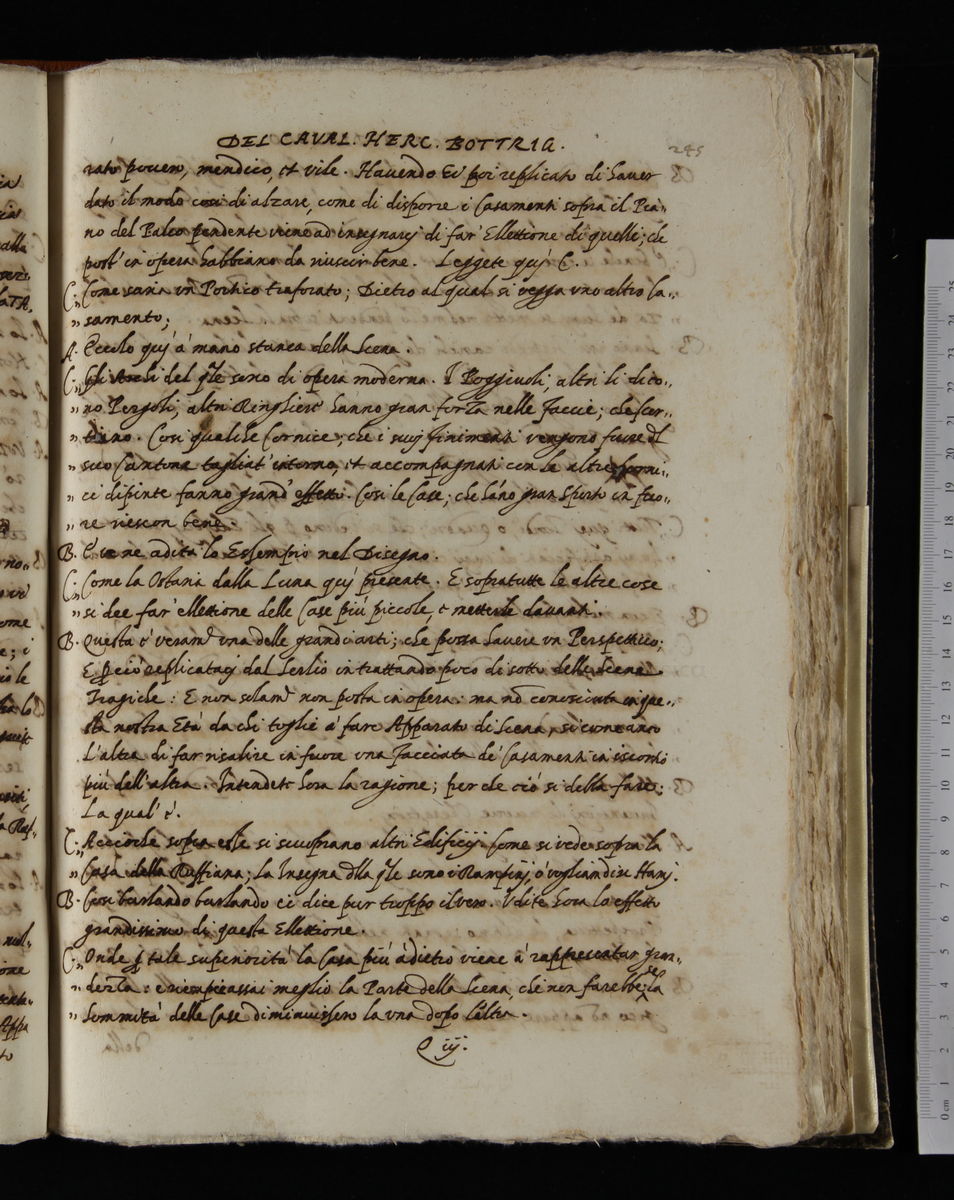 DEL CAVAL. HERC. BOTTRIG.
245
rato povero, mendico, et vile. Havendo Ei poi replicato di haver
dato il modo cosi di alzare, come di disporre i Casamenti sopra il Pia-
no del Palco pendente viene ad insegnarci di far' Ellettione di quelli; che
post' in opera habbiano da riuscir bene. Leggete quì C.
C. „ Come saria un Portico traforato; Dietro al qual si vegga uno altro Ca-
„ samento;
A. Eccolo quì à mano stanca della Scena.
C. „ Gli Archi del qle sono di opera moderna. I Poggiuoli, altri li dico-
„ no Pergoli, altri Ringhiere hanno gran forza nelle faccie; che scor-
„ tiano. Cosi qualche Cornice; che i suoi finimenti vengono fuore dl
„ suo Cantone tagliat' intorno, et accompagnati con le altre Corni-
„ ci dipinte fanno grand' effetto. Cosi le Case; che hāno gran Sporto in fuo-
„ re riescon bene.
B. E' ve ne adita lo Essempio nel Disegno.
C. „ Come la Ostaria dalla Luna quì presente. E sopratutte le altre cose
„ si dee far' ellettione delle Case più piccole, e metterle davanti.
B. Questa è veram.te una delle grandi arti; che possa havere un Perspettivo;
E perciò replicatacy dal Serlio in trattando poco di sotto delle Scene
Tragiche: E non solam.te non posta in opera: ma nō conosciuta in que-
sta nostra Età da chi toglie à fare Apparato di Scena, si come anco
L'altra di far risalire in fuore una Facciata de' Casamenti in iscorcio
più dell'altra. Intendete hora la ragione; per che ciò si debba fare;
La qual' è.
C. „ Acciochè sopra esse si scuoprano altri Edificij. Come si vede sopra la
„ Casa della Ruffiana; la Insegna dlla qle sono i Rampini, ò vogliam dire Harpi.
B. Cosi burlando burlando ci dice pur troppo il vero. Udite hora lo effetto
grandissimo di questa Ellettione.
C. „ Onde p tale superiorità la Casa più à dietro viene à rappresentar gran-
„ dezza: e riempie assai meglio la Parte della Scena, che non farebbe, se la
„ Sommità delle Case diminuissero la una dopo l'altra.
Q iij.